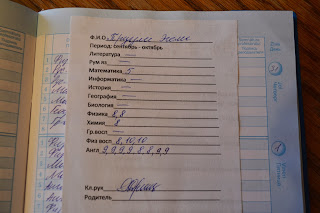 Ф.И.О
Период: сентябрь - октябрь
Литература —
Рум яз —
Математика 5
Информатика —
История —
География —
Биология —
Физика 8,8
Химия 8
Гр.восп —
Физ восп 8,10,10
Англ 9,9,9,8,8,9,9
Кл.рук
Родитель